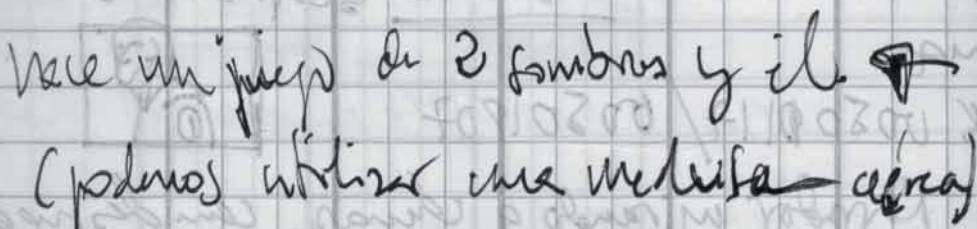 hace un juego de 2 sombras y él
(podemos utilizar una medusa aérea)